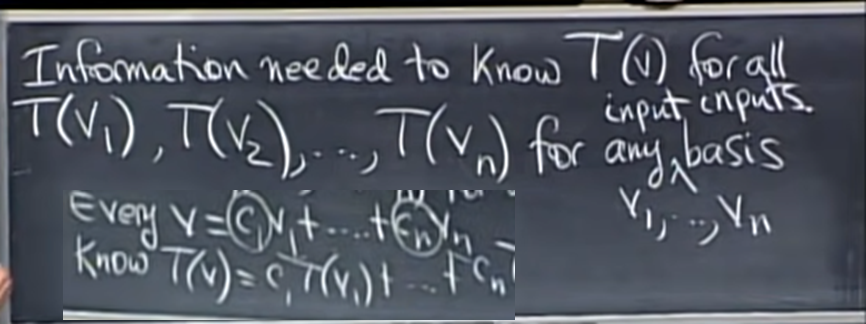 Information needed to know T(v) for all
inputs.
T(v₁), T(v₂), ..., T(vₙ) for any input basis
v₁, .., vₙ
Every v = c₁v₁ + .... + cₙvₙ
Know T(v) = c₁T(v₁) + ... + cₙ